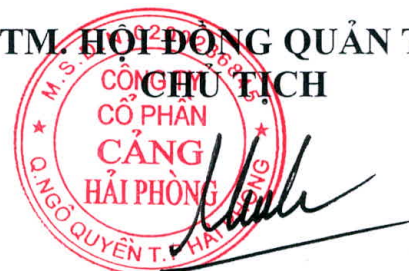 TM. HỘI ĐỒNG QUẢN T
CHỦ TỊCH
CÔNG TY
CỔ PHẦN
CẢNG
HẢI PHÒNG
Q.NGÔ QUYỀN T.P HẢI PHÒNG